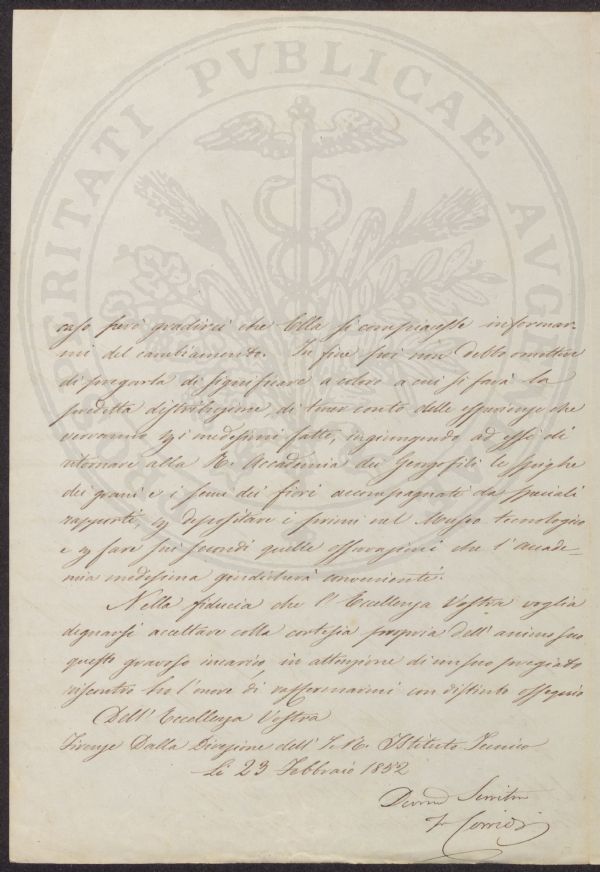 PROSPERITATI PVBLICAE AVGENDAE
caso però gradirei che Ella si compiacesse informar-
mi del cambiamento. In fine poi non debbo omettere
di pregarla di significare a coloro a cui si farà la
predetta distribuzione, di tener conto delle esperienze che
verranno dai medesimi fatte, ingiungendo ad essi di
ritornare alla R. Accademia dei Georgofili le spighe
dei grani e i semi dei fiori accompagnati da speciali
rapporti, p depositare i primi nel Museo tecnologico
e p fare sui secondi quelle osservazioni che l'Accade=
mia medesima giudicherà convenienti.
Nella fiducia che l'Eccellenza Vostra voglia
degnarsi accettare colla cortesia propria dell'animo suo
questo gravoso incarico, in attenzione di un suo pregiato
riscontro ho l'onore di raffermarmi con distinto ossequio
Dell'Eccellenza Vostra
Firenze Dalla Direzione dell'I. e R. Istituto Tecnico
Li 23 Febbraio 1852
Devmo Servitore
F. Corridi